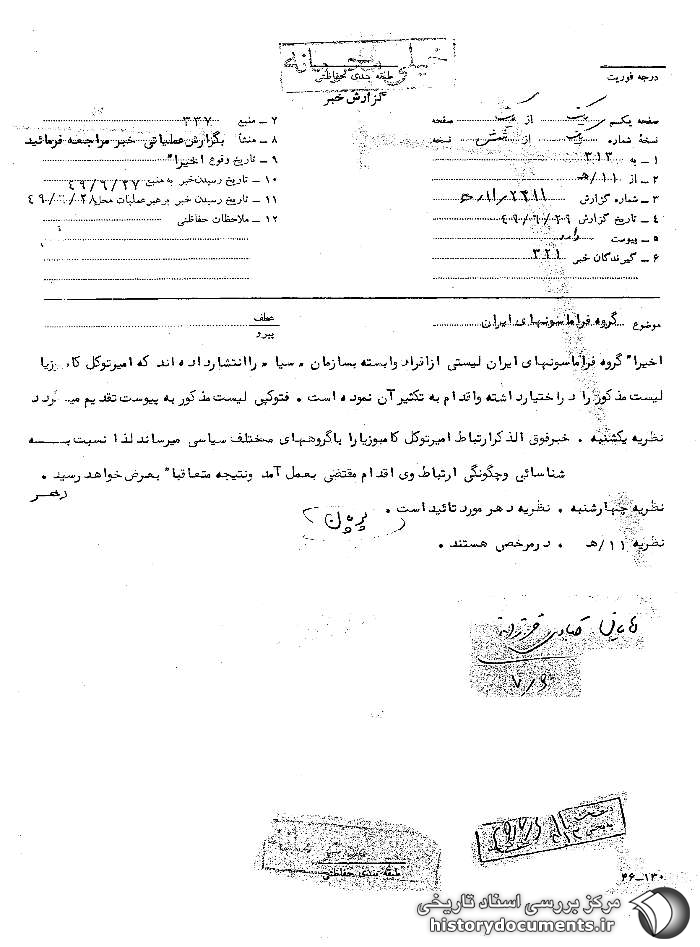 خیلی محرمانه
طبقه بندی حفاظتی
گزارش خبر
درجه فوریت
صفحه یکم از یک صفحه
نسخهٔ شماره یک از شش نسخه
۱ - به ۳۱۲
۲ - از ۱۱/ھ
۳ - شماره گزارش
۴ - تاریخ گزارش ۴۹/۶/۲۹
۵ - پیوست دارد
۶ - گیرندگان خبر ۳۲۱
۷ - منبع ۳۳۷
۸ - منشأ بگزارش عملیاتی خبر مراجعه فرمائید
۹ - تاریخ وقوع اخیرا"
۱۰ - تاریخ رسیدن خبر به منبع ۴۹/۶/۲۷
۱۱ - تاریخ رسیدن خبر برهبر عملیات محل ۴۹/۶/۲۸
۱۲ - ملاحظات حفاظتی
موضوع گروه فراماسونهای ایران
عطف
پیرو
اخیرا" گروه فراماسونهای ایران لیستی از افراد وابسته بسازمان ، سیا ، را انتشار داده اند که امیرتوکل کامبوزیا
لیست مذکور را در اختیار داشته و اقدام به تکثیر آن نموده است . فتوکپی لیست مذکور به پیوست تقدیم میگردد
نظریه یکشنبه . خبر فوق الذکر ارتباط امیرتوکل کامبوزیا را با گروههای مختلف سیاسی میرساند لذا نسبت بـــه
شناسائی و چگونگی ارتباط وی اقدام مقتضی بعمل آمد و نتیجه متعاقبا" بعرض خواهد رسید .
نظریه چهارشنبه . نظریه رهبر مورد تائید است .
نظریه ۱۱/ھ . در مرخصی هستند .
۷/۶
طبقه بندی حفاظتی
۳۶-۱۳۰
مرکز بررسی اسناد تاریخی
historydocuments.ir